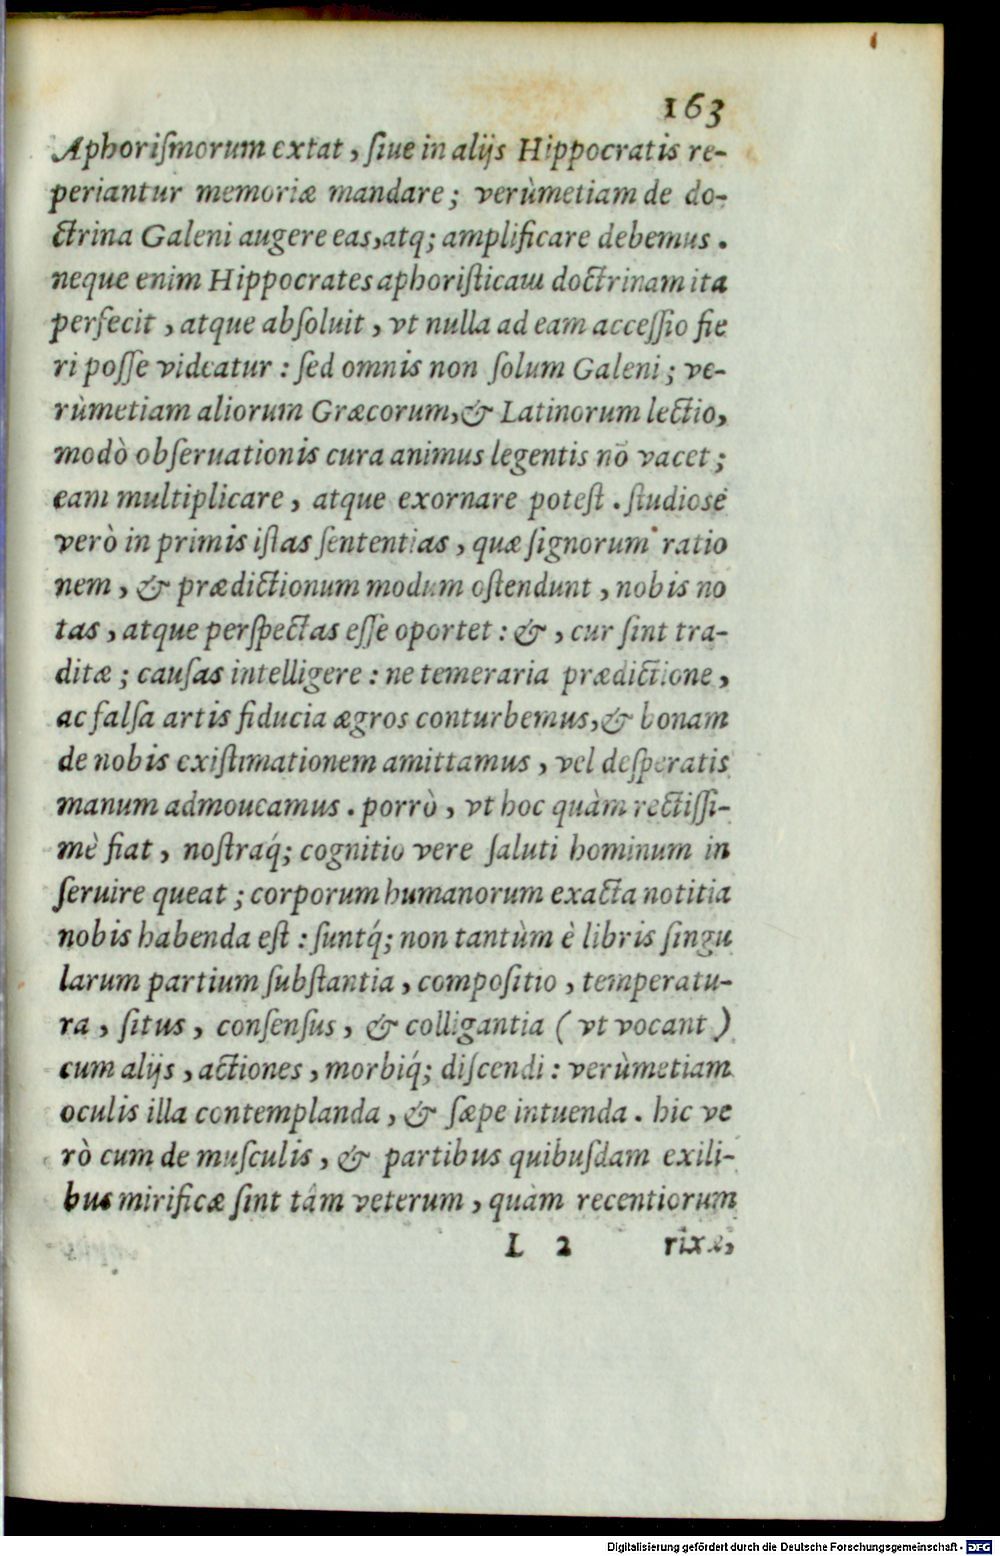 163
Aphoriſmorum extat, ſiue in alijs Hippocratis re-
periantur memoriæ mandare; verùmetiam de do-
ctrina Galeni augere eas, atq; amplificare debemus.
neque enim Hippocrates aphoriſticam doctrinam ita
perfecit, atque abſoluit, vt nulla ad eam acceſſio fie
ri poſſe videatur: ſed omnis non ſolum Galeni; ve-
rùmetiam aliorum Græcorum, & Latinorum lectio,
modò obſeruationis cura animus legentis nō vacet;
eam multiplicare, atque exornare poteſt. ſtudiosè
verò in primis iſtas ſententias, quæ ſignorum ratio
nem, & prædictionum modum oſtendunt, nobis no
tas, atque perſpectas eſſe oportet: &, cur ſint tra-
ditæ; cauſas intelligere: ne temeraria prædictione,
ac falſa artis fiducia ægros conturbemus, & bonam
de nobis exiſtimationem amittamus, vel deſperatis
manum admoueamus. porrò, vt hoc quàm rectiſſi-
mè fiat, noſtraq́; cognitio vere ſaluti hominum in
ſeruire queat; corporum humanorum exacta notitia
nobis habenda eſt: ſuntq́; non tantùm è libris ſingu
larum partium ſubſtantia, compoſitio, temperatu-
ra, ſitus, conſenſus, & colligantia (vt vocant)
cum alijs, actiones, morbiq́; diſcendi: verùmetiam
oculis illa contemplanda, & ſæpe intuenda. hic ve
rò cum de muſculis, & partibus quibuſdam exili-
bus mirificæ ſint tâm veterum, quàm recentiorum
L 2 rixæ,
Digitalisierung gefördert durch die Deutsche Forschungsgemeinschaft - DFG